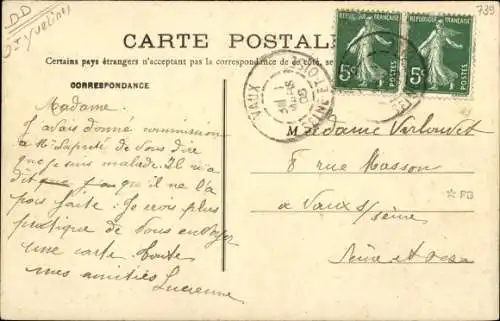 DD
739
CARTE POSTALE
Certains pays étrangers n'acceptant pas la correspondance de ce côté, se
RÉPUBLIQUE FRANÇAISE
5c
RÉPUBLIQUE FRANÇAISE
5c
CORRESPONDANCE
VAUX
SEINE-ET-OISE
Madame
J'avais donné commission
a Mr de Vous dire
que je suis malade. Il m'a
dit qu'il ne l'a
pas faite. Je crois plus
pratique de Vous envoyer
une carte. Toute
mes amitiés Lucienne
Madame
8 rue Masson
a Vaux s/seine
Seine et oise
* PB